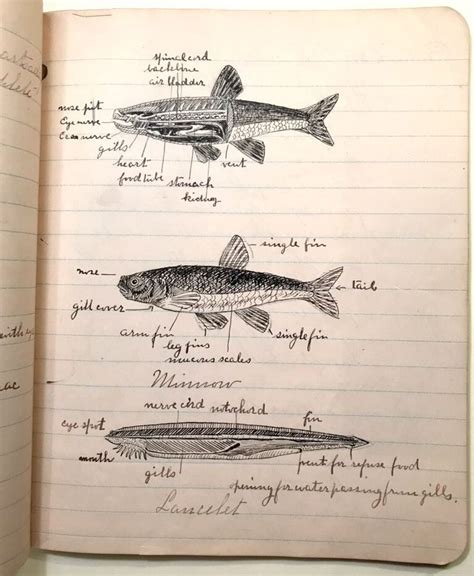 spinal cord
backbone
air bladder
nose pit
Eye nerve
Ear nerve
gills
heart
food tube
stomach
kidney
vent
single fin
nose
tail
gill cover
arm fin
leg fins
single fin
mucous scales
Minnow
nerve cord notochord
fin
eye spot
mouth
gills
vent for refuse food
opening for water passing from gills.
Lancelet